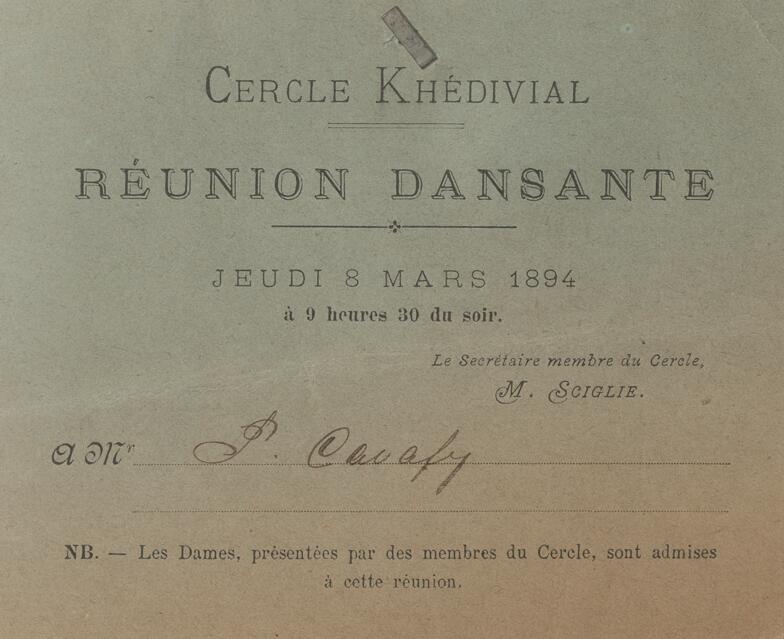 CERCLE KHÉDIVIAL
RÉUNION DANSANTE
JEUDI 8 MARS 1894
à 9 heures 30 du soir.
Le Secrétaire membre du Cercle,
M. SCIGLIE.
A Mr P. Cavafy
NB. — Les Dames, présentées par des membres du Cercle, sont admises
à cette réunion.